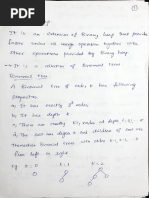 ①
It is an extension of Binary heap that provides
faster union or merge operation together with
other operations provided by Binary heap.
→ It is a collection of Binomial trees
Binomial Tree:
A Binomial Tree of order k has following
properties.
a) It has exactly 2^k nodes
b) It has depth
c) There are exactly
d) The root has depth k and children of root are
themselves Binomial Trees with order k-1, k-2, .. 0
from left to right.
eg. k=0 k=1 k=2